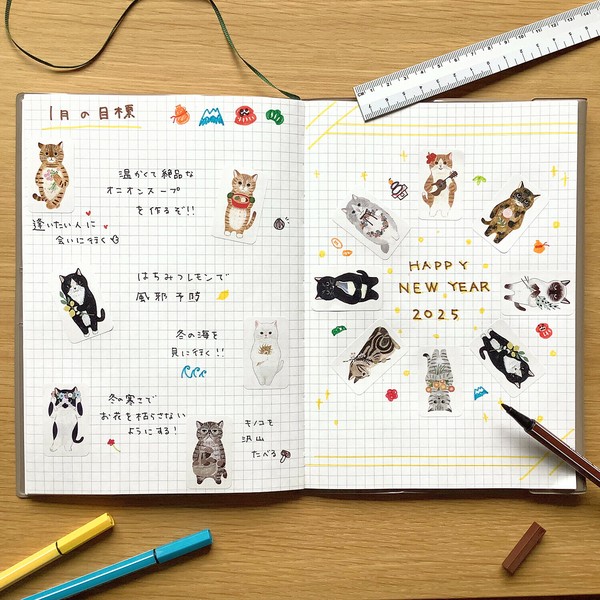 1月の目標
温かくて絶品な
オニオンスープ
を作るぞ!!
逢いたい人に
会いに行く
はちみつレモンで
風邪予防
冬の海を
見に行く!!
冬の寒さで
お花を枯らさない
ようにする!
キノコを
沢山
たべる
HAPPY
NEW YEAR
2025